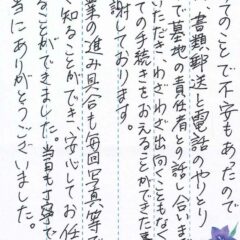 てのことで不安もあったので
書類郵送と電話のやりとり
で墓地の責任者との話し合いま
いただき、わざわざ出向くこともなく
ての手続きをおえることができた
謝しております。
業の進み具合も毎回写真等で
く知ることができ、安心してお任
ることができました。当日も丁寧で
当にありがとうございました。